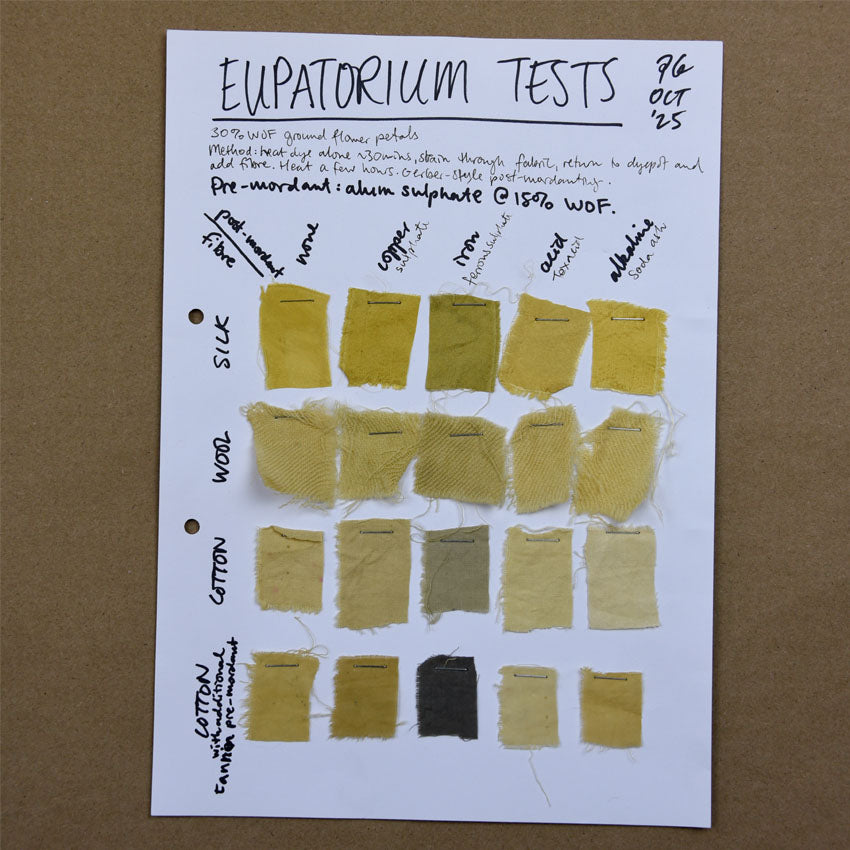 EUPATORIUM TESTS
OCT
'25
30% WOF ground flower petals
Method: heat dye alone ~30mins, strain through fabric, return to dyepot and
add fibre. Heat a few hours. Gerber-style post-mordanting.
Pre-mordant: alum sulphate @ 15% WOF.
post-mordant
fibre
none
copper
sulphate
iron
ferrous sulphate
acid
alkaline
Soda ash
SILK
WOOL
COTTON
COTTON
with additional
tannin pre-mordant